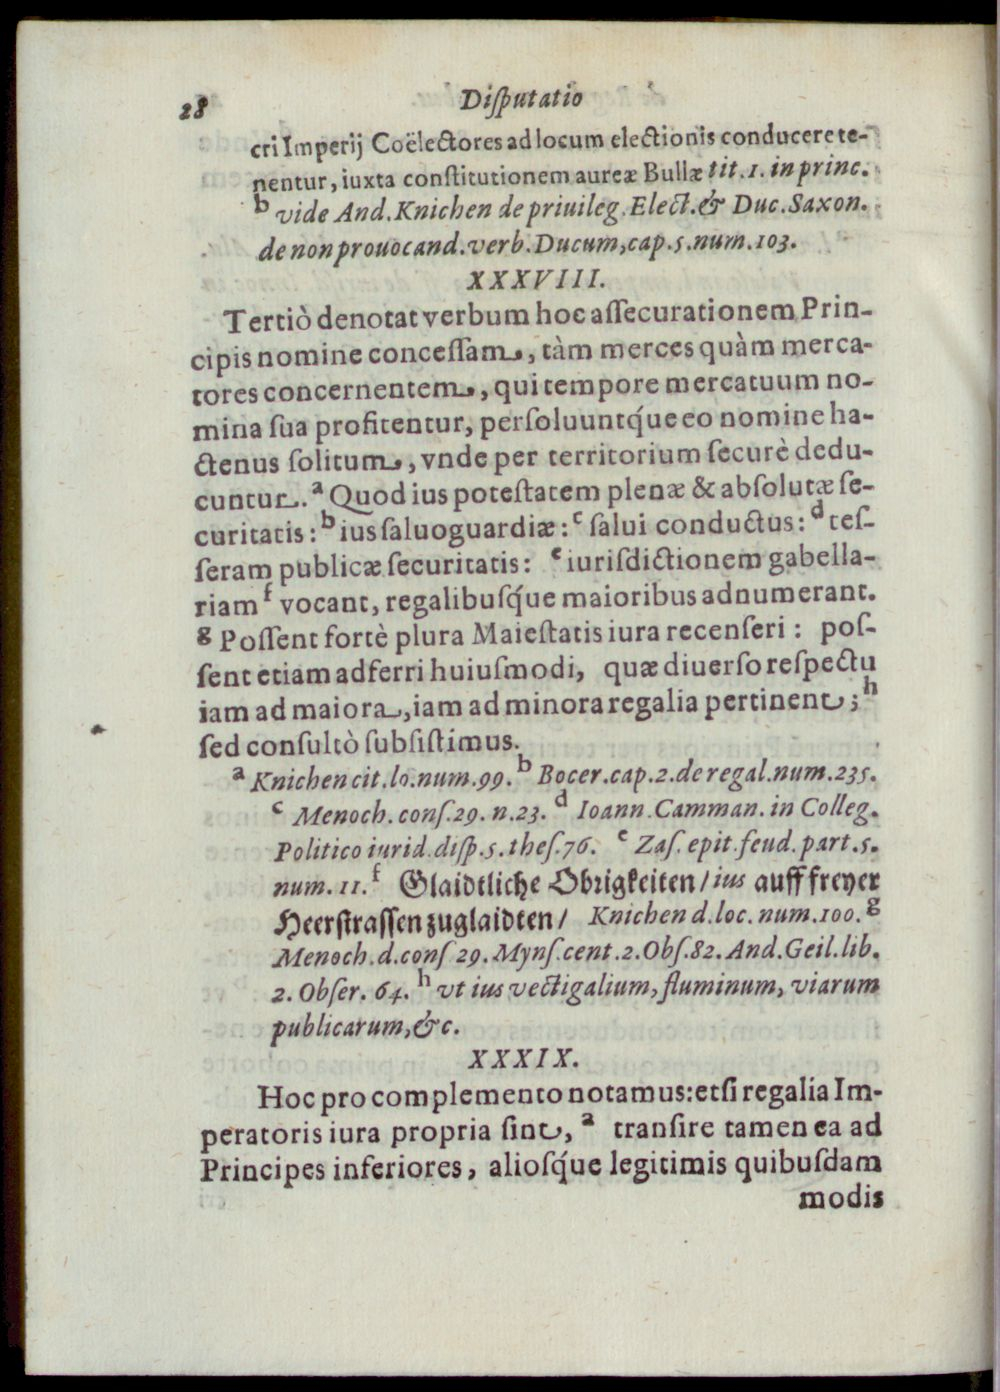 28 Diſputatio
cri Imperij Coëlectores ad locum electionis conducere te-
nentur, iuxta conſtitutionem aureæ Bullæ tit. 1. in princ.
b vide And. Knichen de priuileg. Elect. & Duc. Saxon.
de non prouocand. verb. Ducum, cap. 5. num. 103.
XXXVIII.
Tertiò denotat verbum hoc aſſecurationem Prin-
cipis nomine conceſſam, tàm merces quàm merca-
tores concernentem, qui tempore mercatuum no-
mina ſua profitentur, perſoluuntq́ue eo nomine ha-
ctenus ſolitum, vnde per territorium ſecurè dedu-
cuntur. a Quod ius poteſtatem plenæ & abſolutæ ſe-
curitatis: b ius ſaluoguardiæ: c ſalui conductus: d teſ-
ſeram publicæ ſecuritatis: e iurisdictionem gabella-
riam f vocant, regalibuſq́ue maioribus adnumerant.
g Poſſent fortè plura Maieſtatis iura recenſeri: poſ-
ſent etiam adferri huiuſmodi, quæ diuerſo reſpectu
iam ad maiora, iam ad minora regalia pertinent; h
ſed conſultò ſubſiſtimus.
a Knichen cit. lo. num. 99. b Bocer. cap. 2. de regal. num. 235.
c Menoch. conſ. 29. n. 23. d Ioann. Camman. in Colleg.
Politico iurid. diſp. 5. theſ. 76. e Zaſ. epit. feud. part. 5.
num. 11. f Glaidtliche Obrigkeiten / ius auff freyer
Heerſtraſſen zuglaidten / Knichen d. loc. num. 100. g
Menoch. d. conſ 29. Mynſ. cent. 2. Obſ. 82. And. Geil. lib.
2. Obſer. 64. h vt ius vectigalium, fluminum, viarum
publicarum, &c.
XXXIX.
Hoc pro complemento notamus: etſi regalia Im-
peratoris iura propria ſint, a tranſire tamen ea ad
Principes inferiores, alioſq́ue legitimis quibuſdam
modis